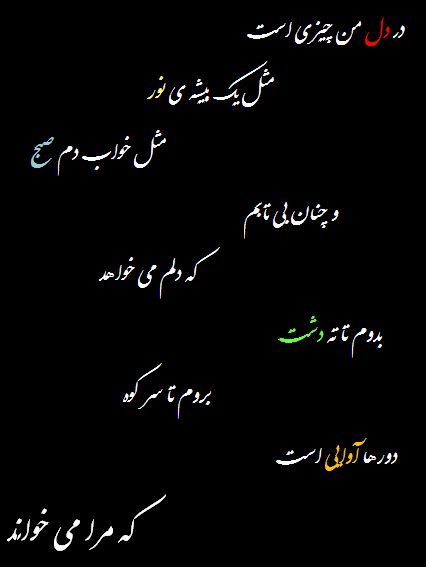 در دل من چیزی است
مثل یک بیشه ی نور
مثل خواب دم صبح
و چنان بی تابم
که دلم می خواهد
بدوم تا ته دشت
بروم تا سر کوه
دورها آوایی است
که مرا می خواند